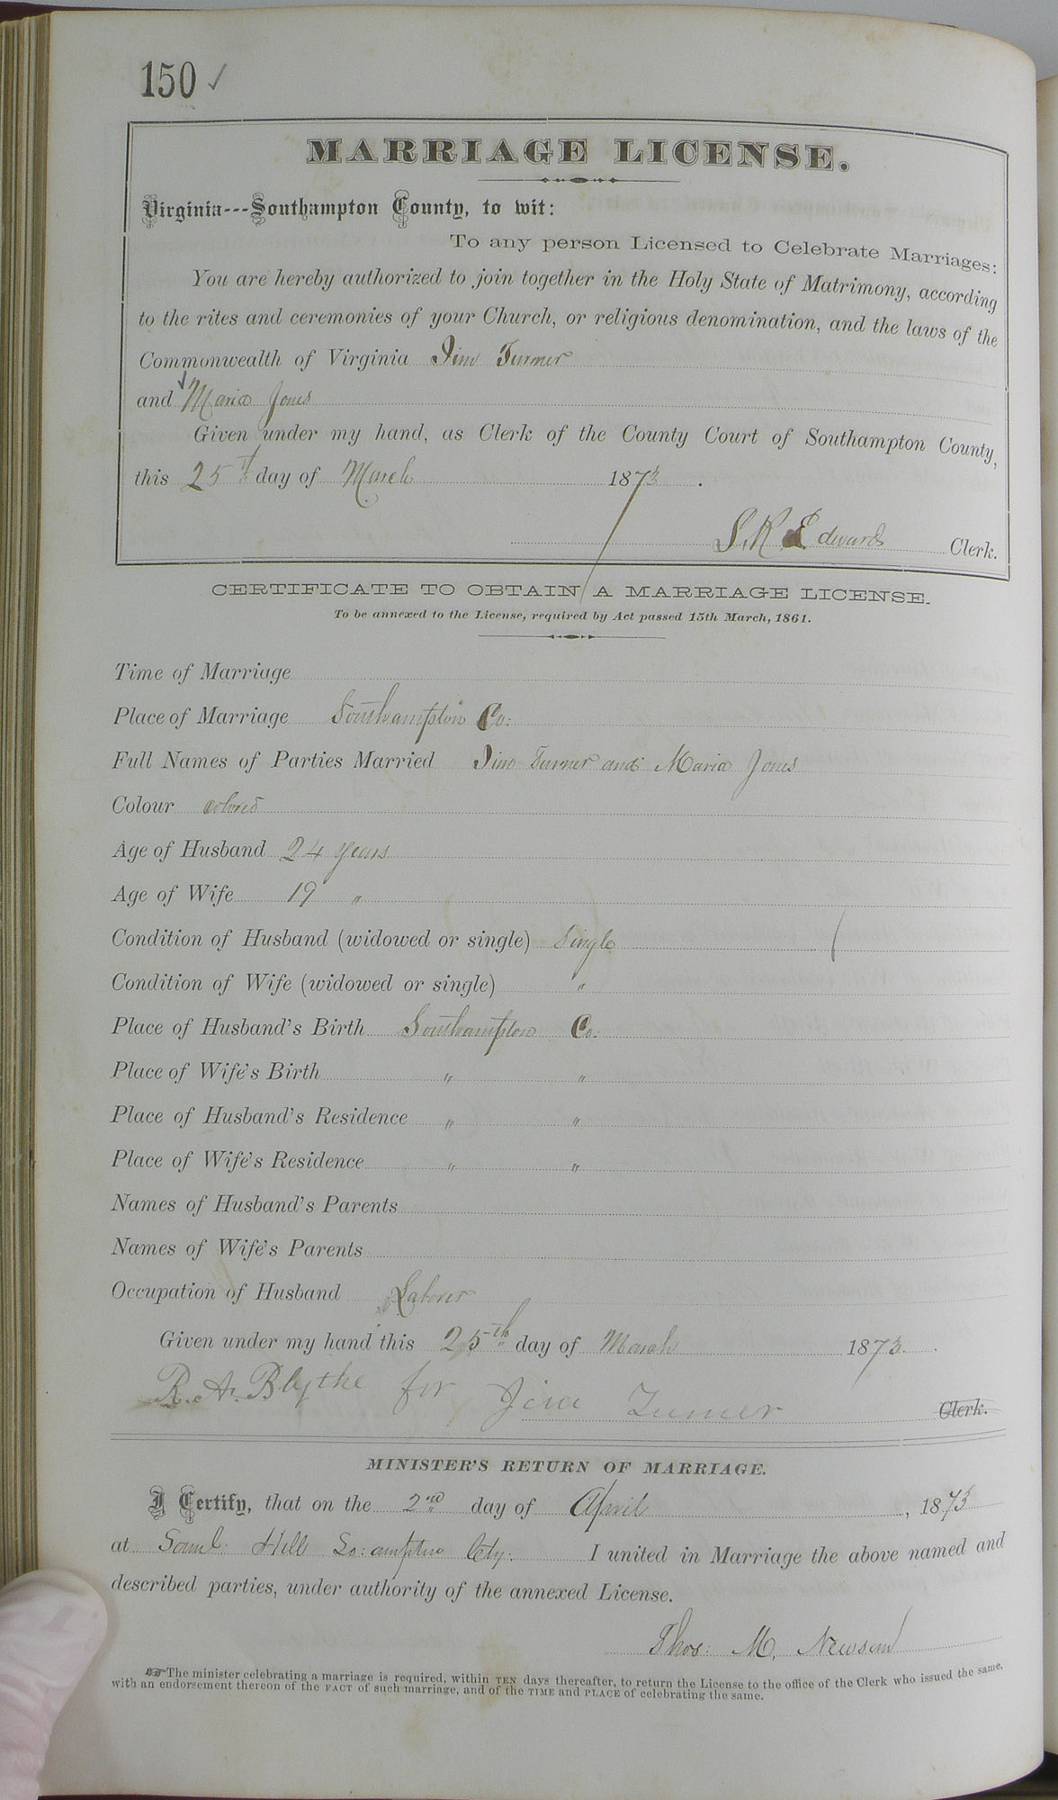 150 ✓
MARRIAGE LICENSE.
Virginia---Southampton County, to wit:
To any person Licensed to Celebrate Marriages:
You are hereby authorized to join together in the Holy State of Matrimony, according
to the rites and ceremonies of your Church, or religious denomination, and the laws of the
Commonwealth of Virginia Jim Turner
and Maria Jones
Given under my hand, as Clerk of the County Court of Southampton County,
this 25th day of March 1873.
S. K. Edwards Clerk.
CERTIFICATE TO OBTAIN A MARRIAGE LICENSE.
To be annexed to the License, required by Act passed 15th March, 1861.
Time of Marriage
Place of Marriage Southampton Co:
Full Names of Parties Married Jim Turner and Maria Jones
Colour colored
Age of Husband 24 years
Age of Wife 19 "
Condition of Husband (widowed or single) Single
Condition of Wife (widowed or single) "
Place of Husband's Birth Southampton Co.
Place of Wife's Birth " "
Place of Husband's Residence " "
Place of Wife's Residence " "
Names of Husband's Parents
Names of Wife's Parents
Occupation of Husband Laborer
Given under my hand this 25th day of March 1873.
R. A. Blythe for Jim Turner Clerk.
MINISTER'S RETURN OF MARRIAGE.
I Certify, that on the 2nd day of April, 1873
at Saml Hills So:ampton Cty. I united in Marriage the above named and
described parties, under authority of the annexed License.
Thos: M. Newsom
The minister celebrating a marriage is required, within TEN days thereafter, to return the License to the office of the Clerk who issued the same,
with an endorsement thereon of the FACT of such marriage, and of the TIME and PLACE of celebrating the same.